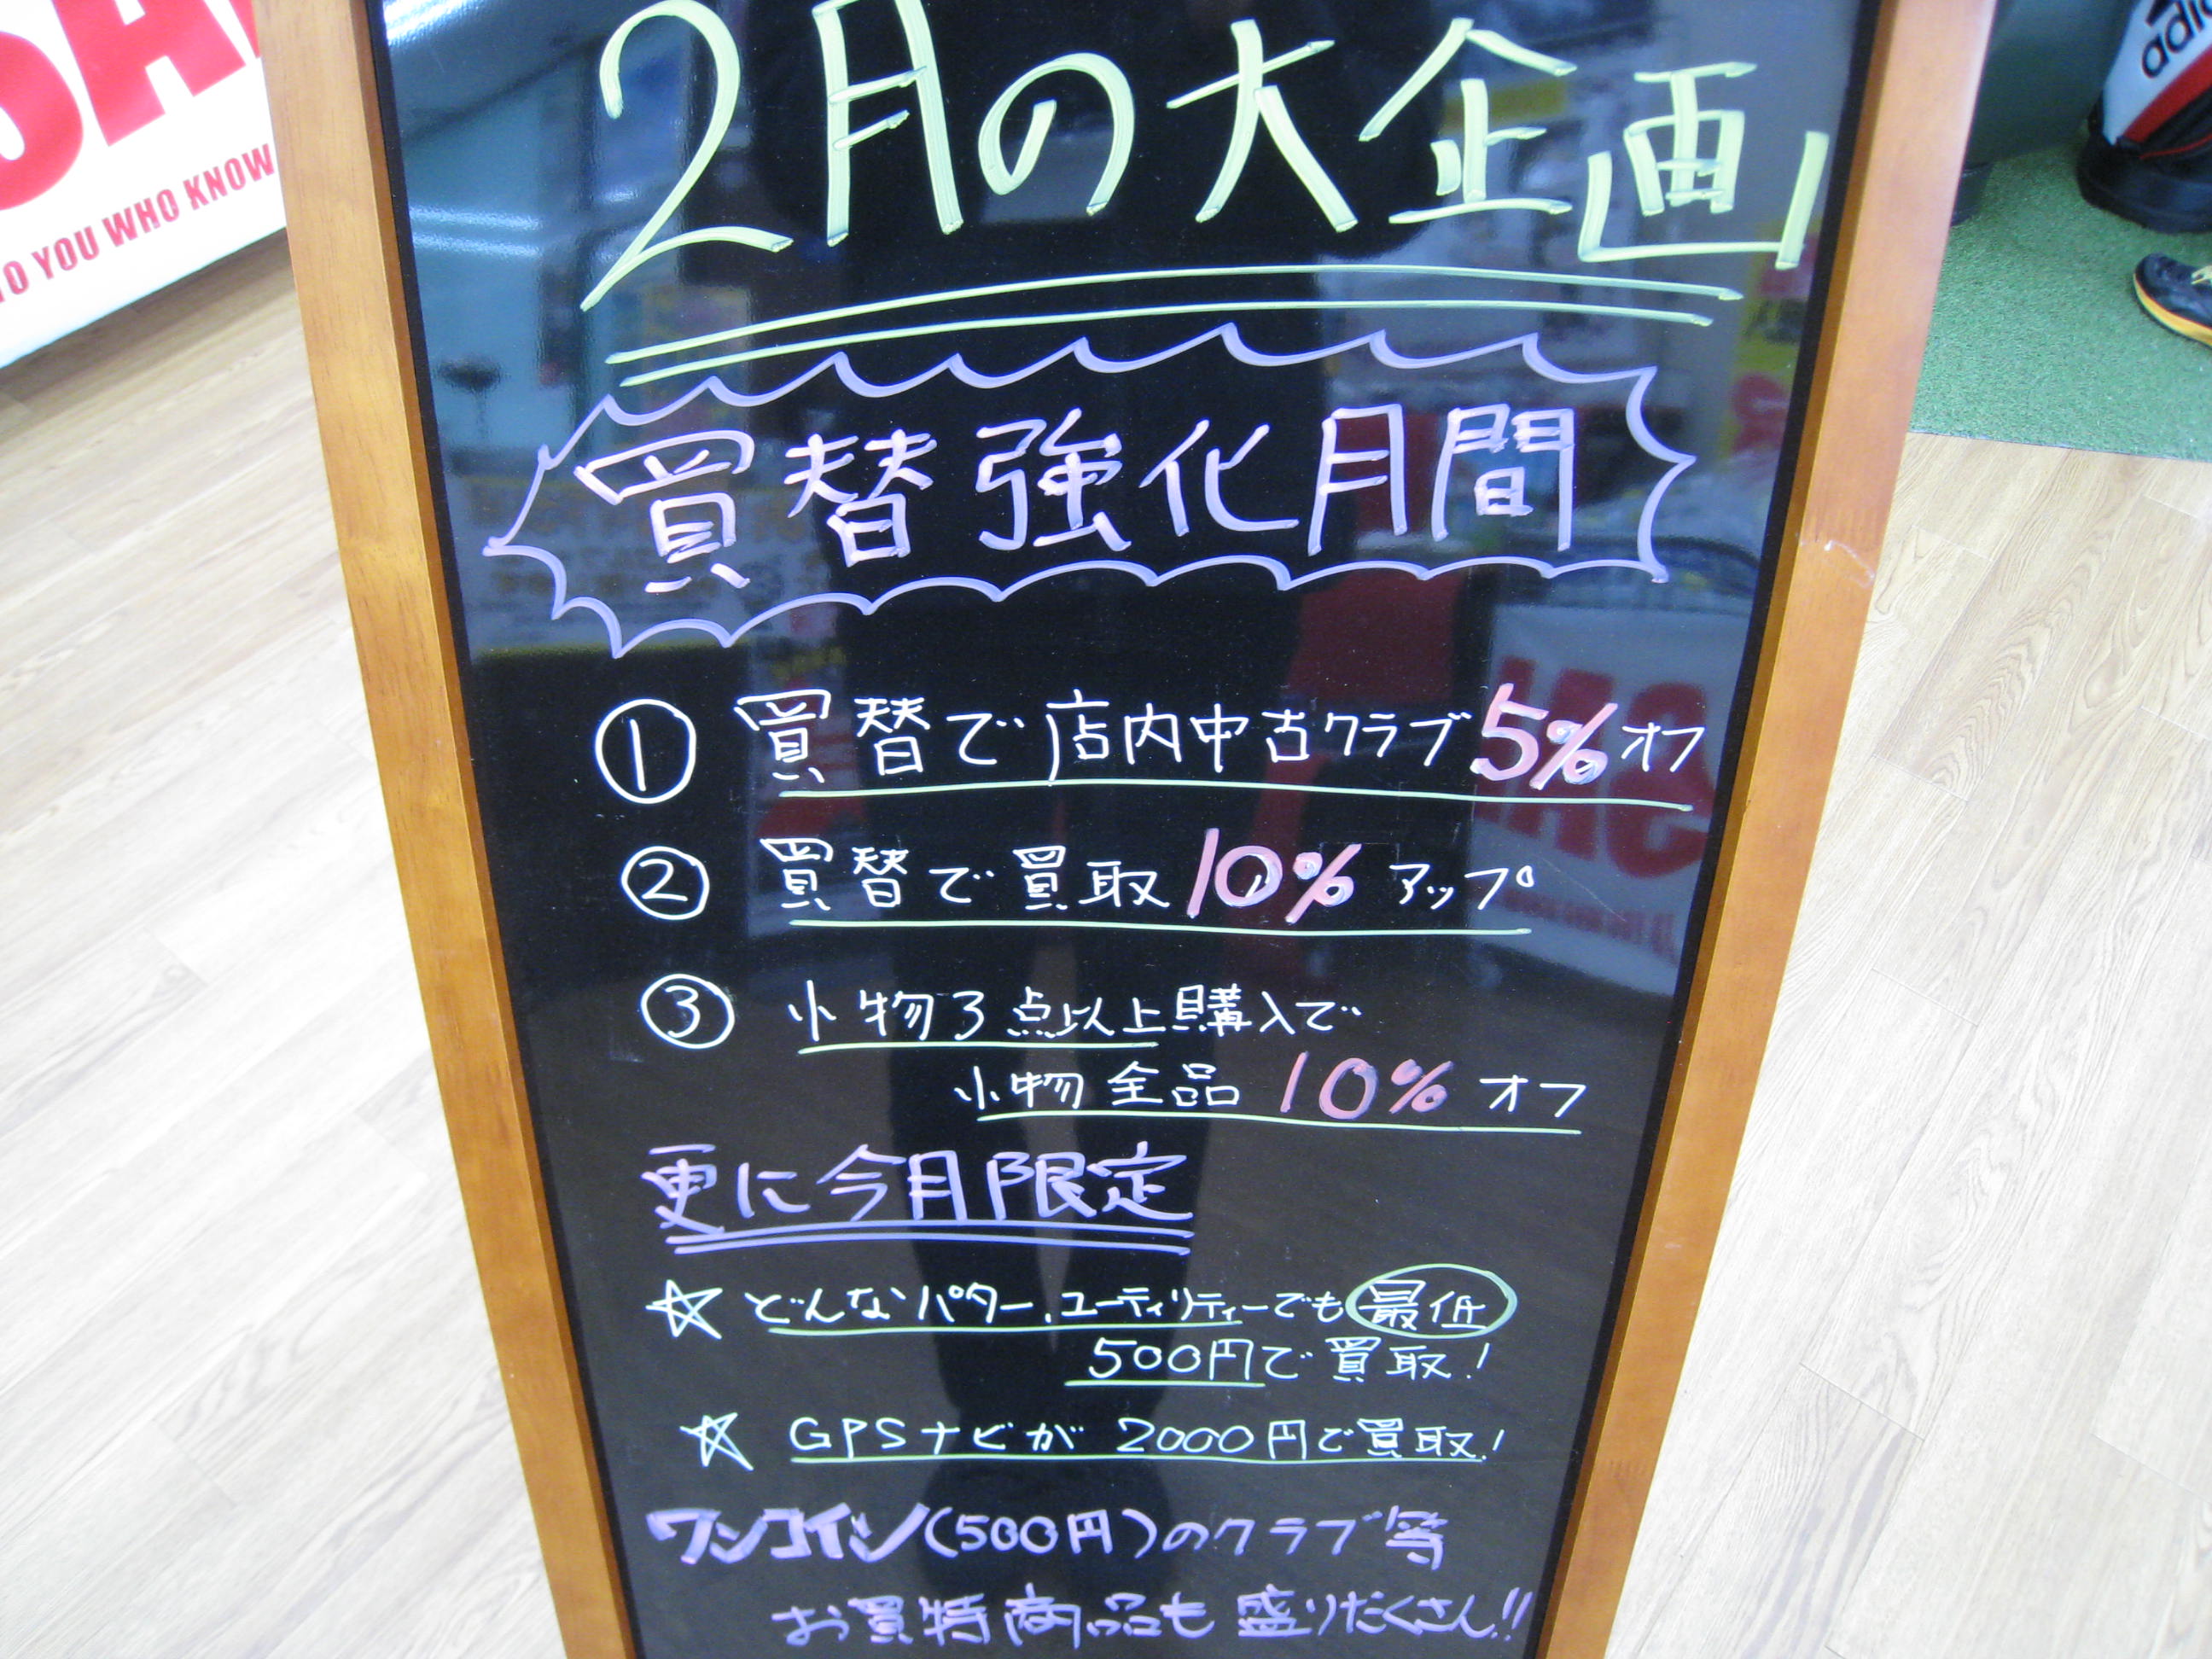 2月の大企画
買替強化月間
① 買替で店内中古クラブ5%オフ
② 買替で買取10%アップ
③ 小物3点以上購入で
小物全品 10% オフ
更に今月限定
☆ どんなパター、ユーティリティーでも最低
500円で買取!
☆ GPSナビが 2000円で買取!
ワンコイン(500円)のクラブ等
お買特商品も盛りだくさん!!
TO YOU WHO KNOW
adi